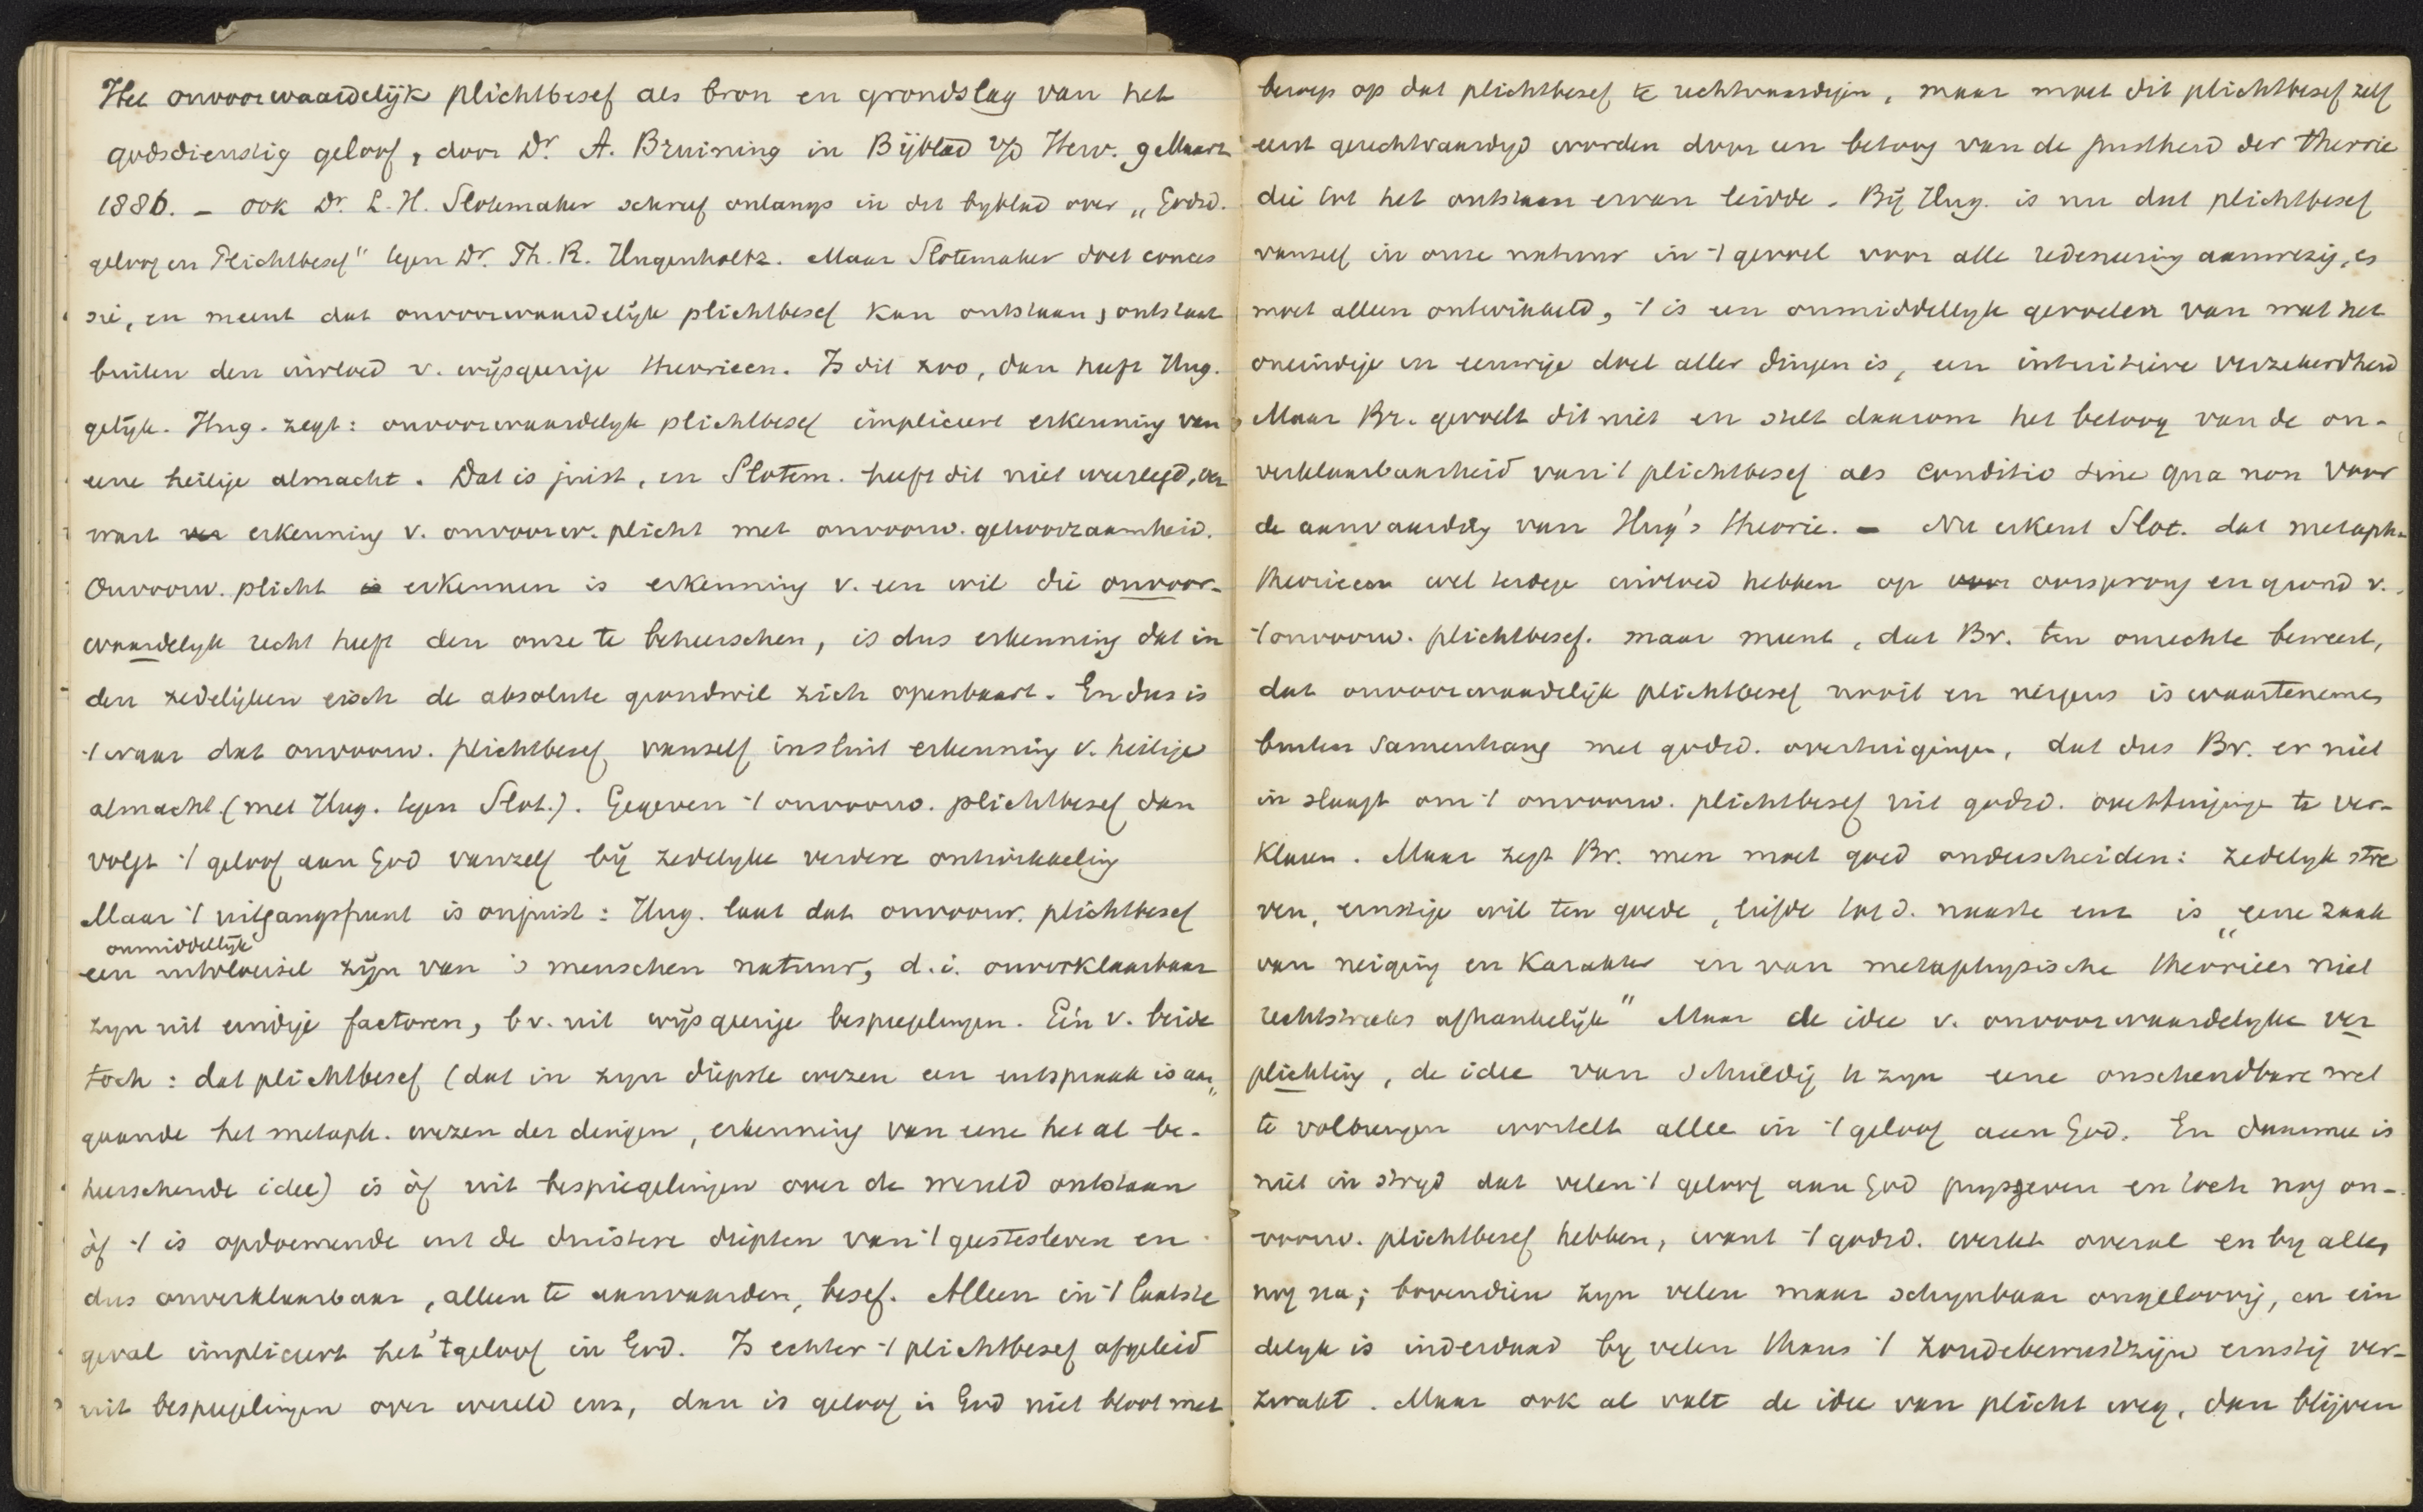 Het onvoorwaardelijk plichtbesef als bron en grondslag van het
godsdienstig geloof, door Dr. A. Bruining in Bijblad v/d Herv. 9 Maart
1886. – ook Dr. L. H. Slotemaker schreef onlangs in dit byblad over „Godsd.
geloof en Plichtbesef" tegen Dr. Th. R. Hugenholtz. Maar Slotemaker doet conces
sie, en meent dat onvoorwaardelijk plichtbesef kan ontstaan, ontstaat
buiten den invloed v. wijsgerige theorieen. Is dit zoo, dan heeft Hug.
gelijk. Hug. zegt: onvoorwaardelyk plichtbesef impliceert erkenning van
eene heilige almacht. Dat is juist, en Slotem. heeft dit niet weerlegd, ver
wart erkenning v. onvoorw. plicht met onvoorw. gehoorzaamheid.
Onvoorw. plicht erkennen is erkenning v. een wil die onvoor-
waardelyk recht heeft den onze te beheerschen, is dus erkenning dat in
den zedelijken eisch de absolute grondwil zich openbaart. En dus is
't waar dat onvoorw. plichtbesef vanzelf insluit erkenning v. heilige
almacht (met Hug. tegen Slot.). Gegeven 't onvoorw. plichtbesef dan
volgt 't geloof aan God vanzelf bij zedelyke verdere ontwikkeling
Maar 't uitgangspunt is onjuist: Hug. laat dat onvoorw. plichtbesef
onmiddellijk
een uitvloeisel zijn van 's menschen natuur, d.i. onverklaarbaar
zyn uit eindige factoren, bv. uit wijsgerige bespiegelingen. Eén v. beide
toch: dat plichtbesef (dat in zyn diepste wezen een uitspraak is aan„
gaande het metaph. wezen der dingen, erkenning van eene het al be-
heerschende idee) is òf uit bespiegelingen over de wereld ontstaan
òf 't is opdoemende uit de duistere diepten van 't geestesleven en
dus onverklaarbaar, alleen te aanvaarden, besef. Alleen in 't laatste
geval impliceert het 't geloof in God. Is echter 't plichtbesef afgeleid
uit bespiegelingen over wereld enz, dan is geloof in God niet bloot met
beroep op dat plichtbesef te rechtvaardigen, maar moet dit plichtbesef zelf
eerst gerechtvaardigd worden door een betoog van de juistheid der theorie
die tot het ontstaan ervan leidde. Bij Hug. is nu dat plichtbesef
vanzelf in onze natuur in 't gevoel voor alle redeneering aanwezig, es
moet alleen ontwikkeld, 't is een onmiddellyk gevoelen van wat het
oneindige en eeuwige doel aller dingen is, een intuitieve verzekerdheid
Maar Br. gevoelt dit niet en stelt daarom het betoog van de on-
verklaarbaarheid van 't plichtbesef als conditio sine qua non voor
de aanvaarding van Hug's theorie. – Nu erkent Slot. dat metaph.
theorieen wel terdege invloed hebben op oorsprong en grond v.
't onvoorw. plichtbesef. maar meent, dat Br. ten onrechte beweert,
dat onvoorwaardelijk plichtbesef nooit en nergens is waartenemen
buiten samenhang met godsd. overtuigingen, dat dus Br. er niet
in slaagt om 't onvoorw. plichtbesef uit godsd. overtuigingen te ver-
klaren. Maar zegt Br. men moet goed onderscheiden: zedelyk stre
ven, ernstige wil ten goede, liefde tot d. naaste enz is „eene zaak
van neiging en karakter en van metaphysische theorieen niet
rechtstreeks afhankelijk" Maar de idee v. onvoorwaardelyke ver
plichting, de idee van schuldig te zyn eene onschendbare wet
te volbrengen wortelt alleen in 't geloof aan God. En daarmee is
niet in stryd dat velen 't geloof aan God prysgeven en toch nog on-
voorw. plichtbesef hebben, want 't godsd. werkt overal en by allen
nog na; bovendien zyn velen maar schynbaar ongeloovig, en ein
delyk is inderdaad by velen thans 't zondebewustzijn ernstig ver-
zwakt. Maar ook al valt de idee van plicht weg, dan blijven